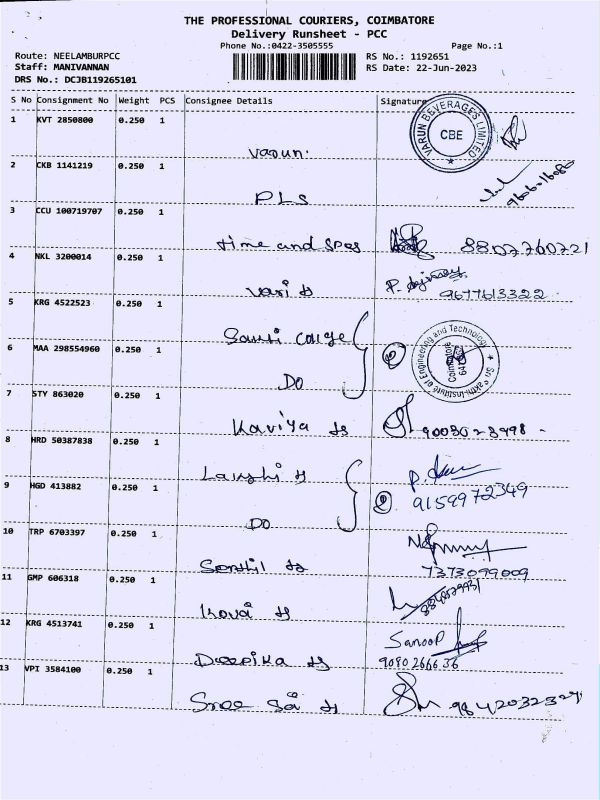 THE PROFESSIONAL COURIERS, COIMBATORE
Delivery Runsheet - PCC
Phone No.:0422-3505555 Page No.:1
Route: NEELAMBURPCC RS No.: 1192651
Staff: MANIVANNAN RS Date: 22-Jun-2023
DRS No.: DCJB119265101
S No Consignment No Weight PCS Consignee Details Signature
1 KVT 2850800 0.250 1
VARUN BEVERAGES LIMITED
CBE
Varun.
2 CKB 1141219 0.250 1
PLS
3 CCU 100719707 0.250 1
time and spes 8807760721
4 NKL 3200014 0.250 1
Vari 9677613322
5 KRG 4522523 0.250 1
Sri Sakthi Institute of Engineering and Technology
Coimbatore
6 MAA 298554960 0.250 1
DO
7 STY 863020 0.250 1
Kaviya
8 HRD 50387838 0.250 1
9 HGD 413882 0.250 1
9159972349
DO
10 TRP 6703397 0.250 1
7373099009
11 GMP 606318 0.250 1
12 KRG 4513741 0.250 1
Sanoop
Deepika 9080266636
13 VPI 3584100 0.250 1
Sree